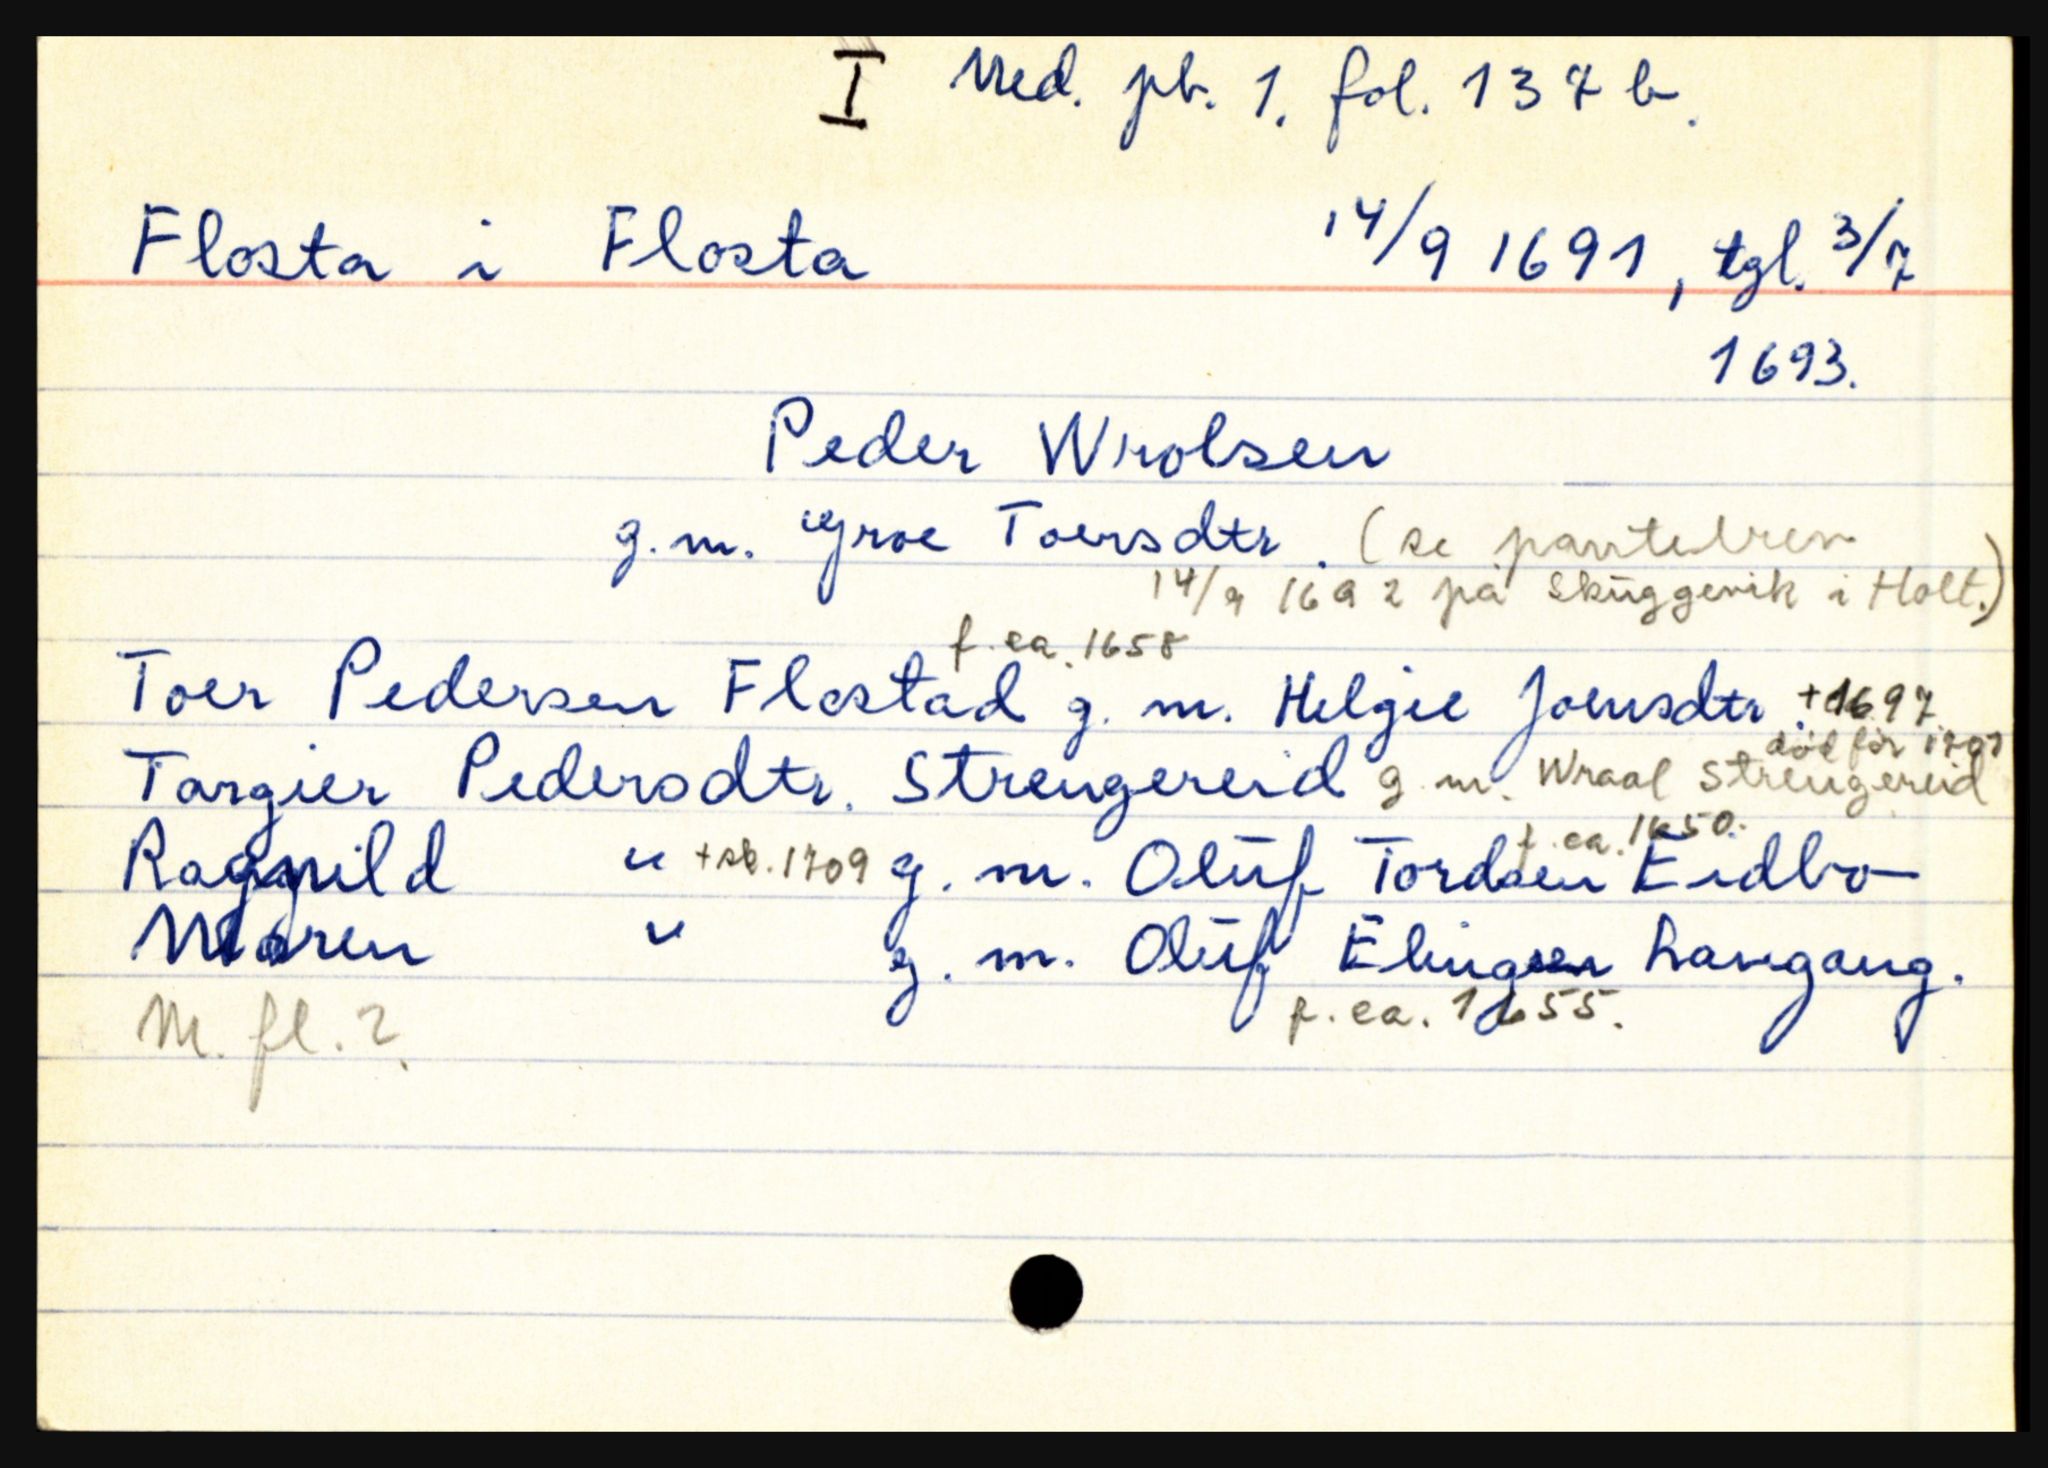 I Ned. pb. 1. fol. 137 b.
Flosta i Flosta 14/9 1691, tgl. 3/7
1693.
Peder Wrolsen
g. m. Groe Toersdtr. (se pantebrev
14/9 1692 på Skuggevik i Holt.)
f. ca. 1658
Toer Pedersen Flostad g. m. Helgie Joensdtr. + 1697.
død før 1707
Targier Pedersdtr. Strengereid g. m. Wraal Strengereid
f. ca. 1650.
Ragnild " + sk. 1709 g. m. Oluf Tordsen Eidbo
Maren " g. m. Oluf Elingsen Langang.
f. ca. 1655.
M. fl. ?